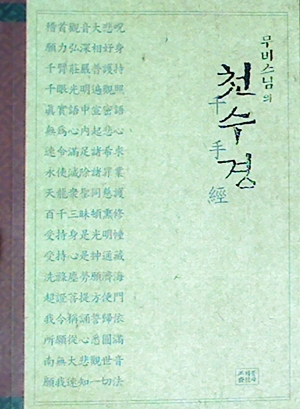 무비스님의
천수경
千手經
稽首觀音大悲呪
願力弘深相好身
千臂莊嚴普護持
千眼光明遍觀照
眞實語中宣密語
無爲心內起悲心
速令滿足諸希求
永使滅除諸罪業
天龍衆聖同慈護
百千三昧頓熏修
受持身是光明幢
受持心是神通藏
洗滌塵勞願濟海
超證菩提方便門
我今稱誦誓歸依
所願從心悉圓滿
南無大悲觀世音
願我速知一切法